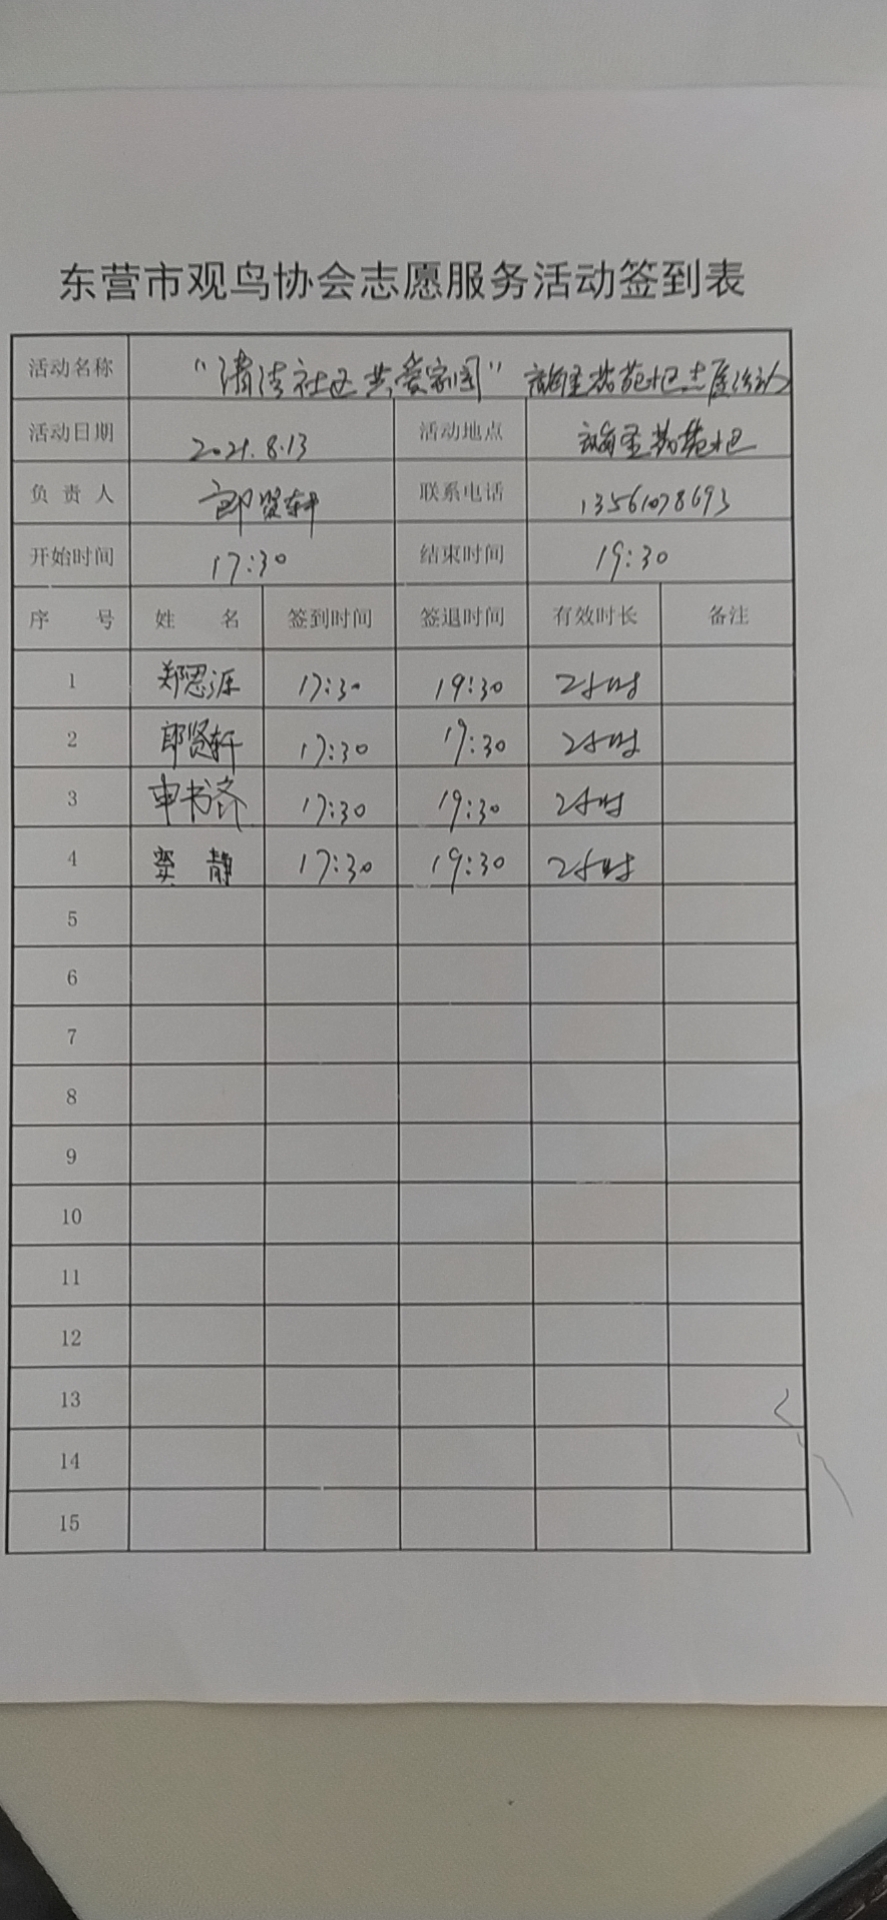 东营市观鸟协会志愿服务活动签到表
活动名称 “清洁社区 共爱家园” 志愿活动
活动日期 2021.8.13 活动地点
负责人 郎贤轩 联系电话 13561078693
开始时间 17:30 结束时间 19:30
序号 姓名 签到时间 签退时间 有效时长 备注
1 郑思源 17:30 19:30 2小时
2 郎贤轩 17:30 19:30 2小时
3 申书齐 17:30 19:30 2小时
4 静 17:30 19:30 2小时
5
6
7
8
9
10
11
12
13
14
15